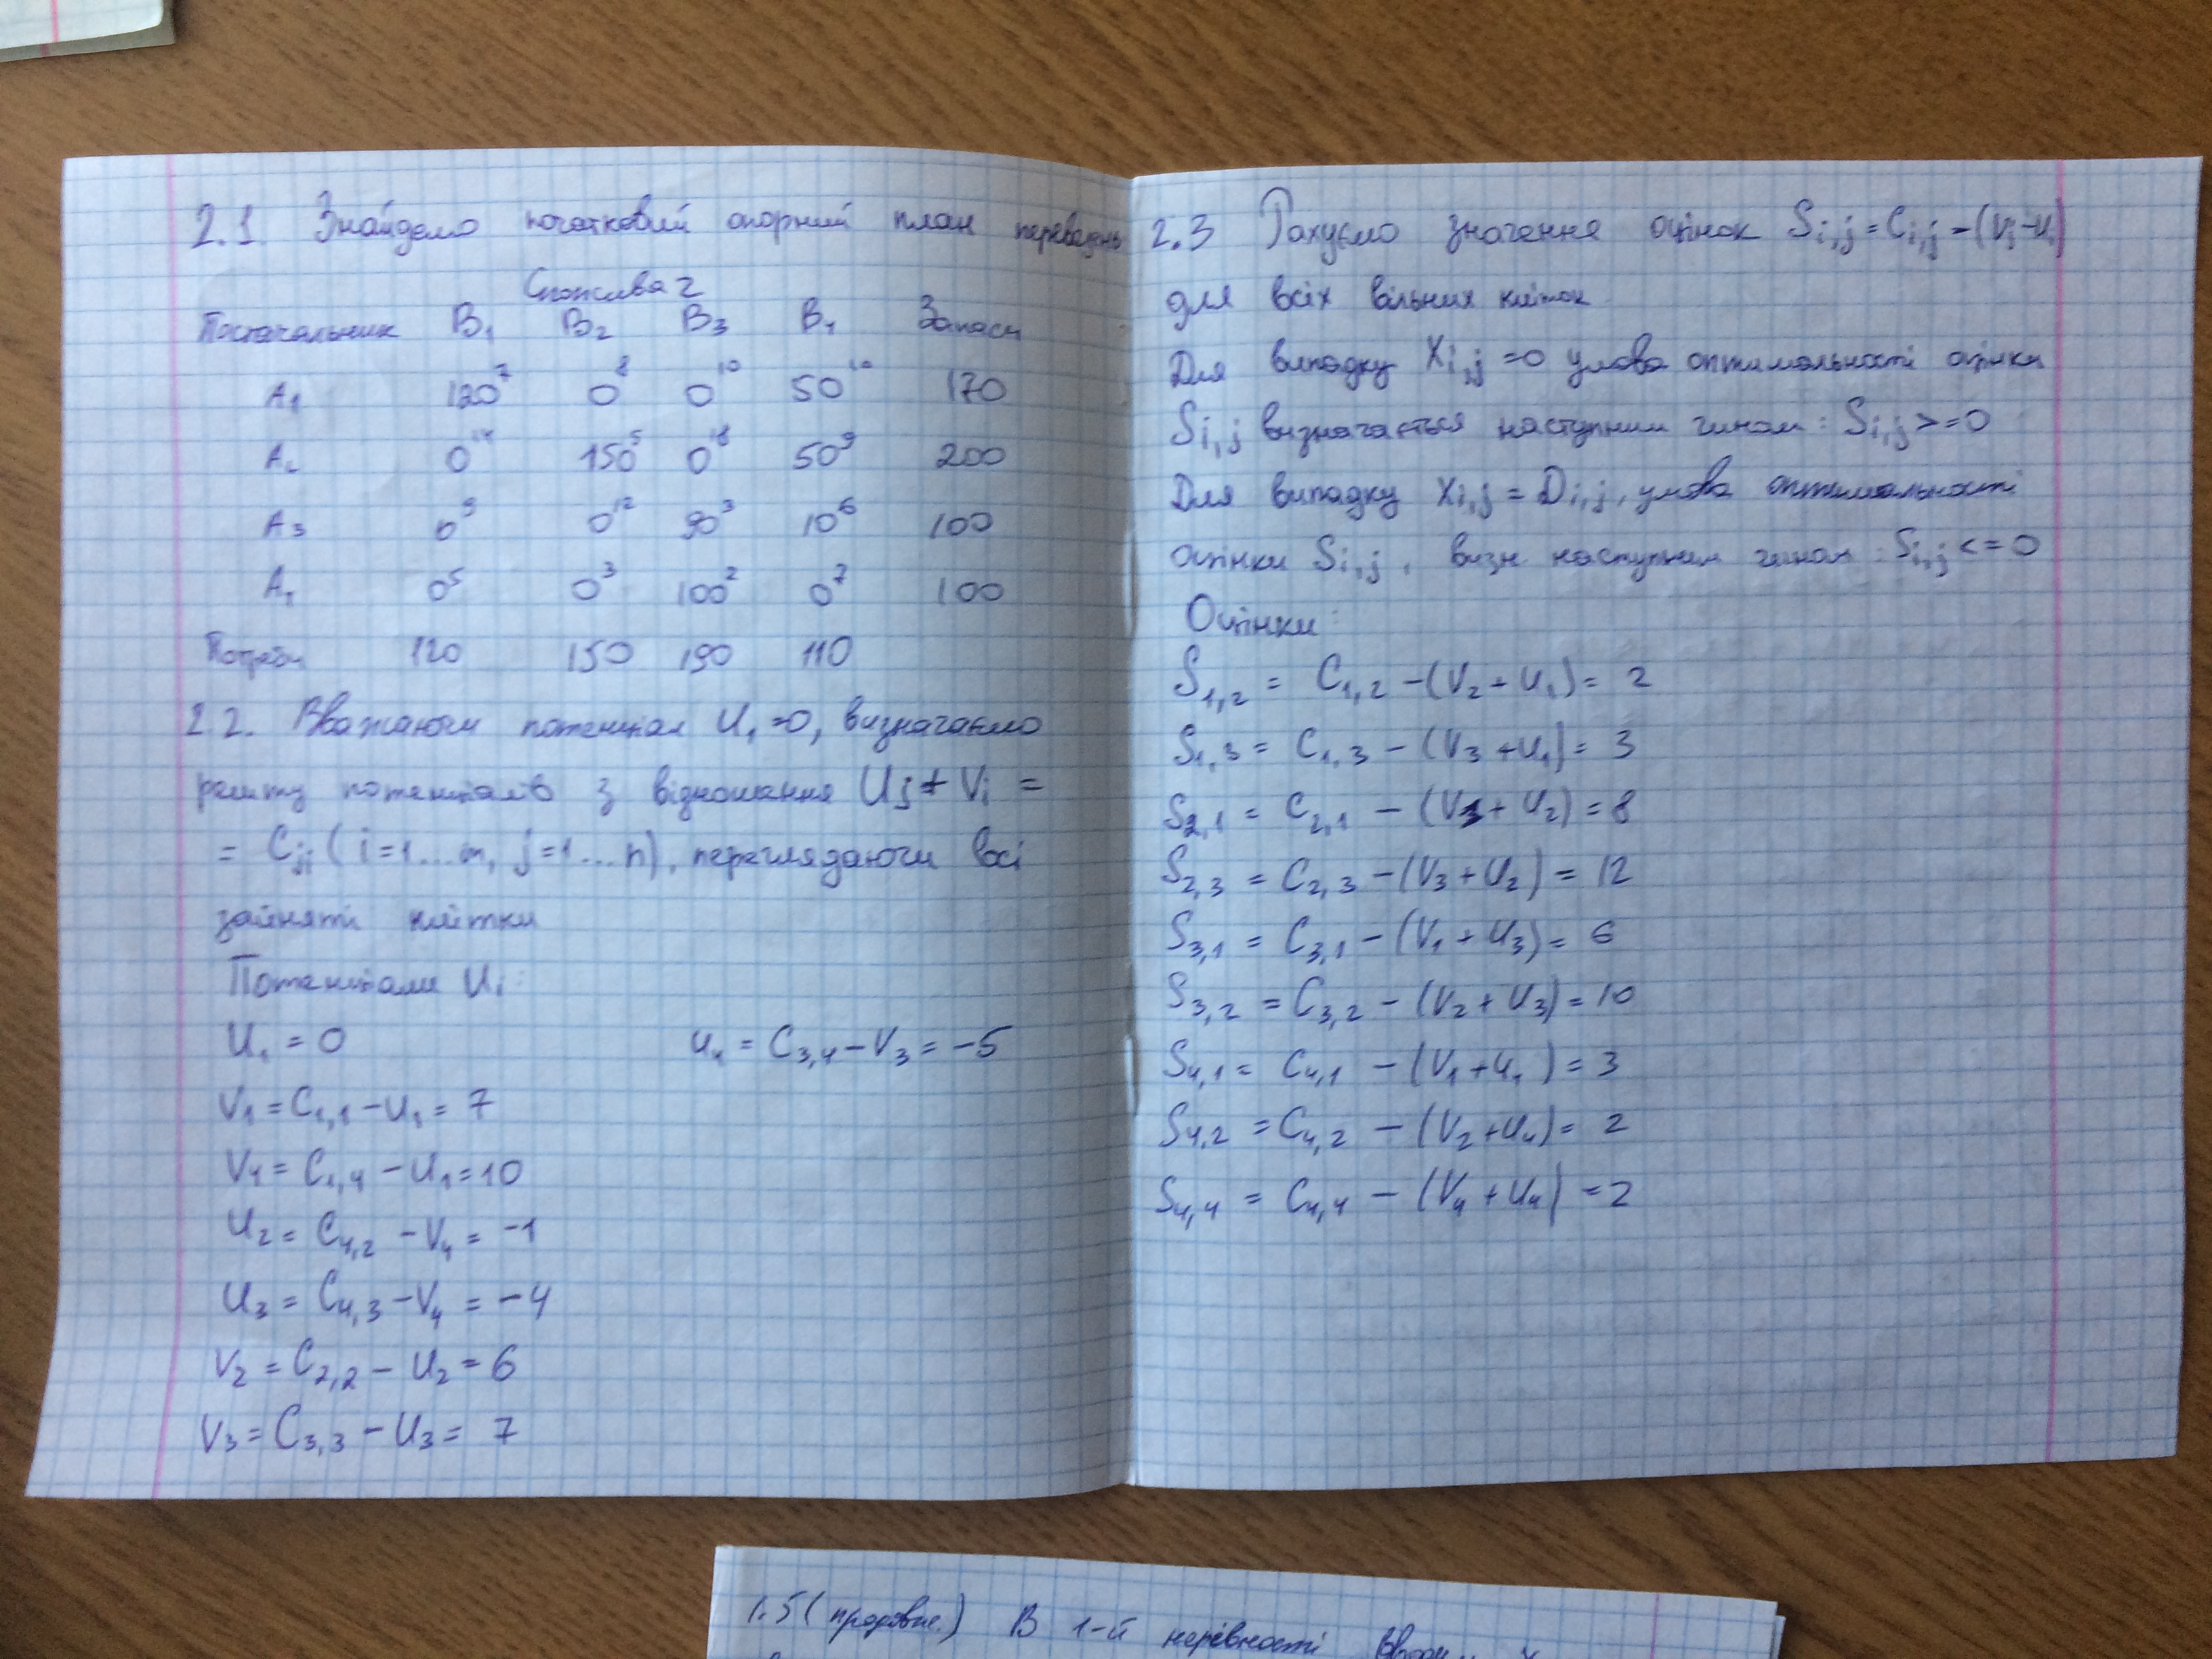 2.1 Знайдемо початковий опорний план перевезень
Споживач
Постачальник B₁ B₂ B₃ B₄ Запаси
A₁ 120⁷ 0⁸ 0¹⁰ 50¹⁰ 170
A₂ 0¹⁴ 150⁵ 0¹⁸ 50⁹ 200
A₃ 0⁹ 0¹² 90³ 10⁶ 100
A₄ 0⁵ 0³ 100² 0⁷ 100
Потреби 120 150 190 110
2.2. Вважаючи потенціал U₁=0, визначаємо
решту потенціалів з відношення Uj + Vi =
= Cji (i=1...m, j=1...n), переглядаючи всі
зайняті клітки
Потенціали Ui:
U₁ = 0
V₁ = C₁,₁ – U₁ = 7
V₄ = C₁,₄ – U₁ = 10
U₂ = C₄,₂ – V₄ = -1
U₃ = C₄,₃ – V₄ = -4
V₂ = C₂,₂ – U₂ = 6
V₃ = C₃,₃ – U₃ = 7
U₄ = C₃,₄ – V₃ = -5
2.3 Рахуємо значення оцінок Si,j = Ci,j – (Vj – Ui)
для всіх вільних кліток
Для випадку Xi,j = 0 умова оптимальності оцінки
Si,j визначається наступним чином: Si,j >= 0
Для випадку Xi,j = Di,j, умова оптимальності
оцінки Si,j, визн наступним чином: Si,j <= 0
Оцінки:
S₁,₂ = C₁,₂ – (V₂ + U₁) = 2
S₁,₃ = C₁,₃ – (V₃ + U₁) = 3
S₂,₁ = C₂,₁ – (V₁ + U₂) = 8
S₂,₃ = C₂,₃ – (V₃ + U₂) = 12
S₃,₁ = C₃,₁ – (V₁ + U₃) = 6
S₃,₂ = C₃,₂ – (V₂ + U₃) = 10
S₄,₁ = C₄,₁ – (V₁ + U₄) = 3
S₄,₂ = C₄,₂ – (V₂ + U₄) = 2
S₄,₄ = C₄,₄ – (V₄ + U₄) = 2
1.5 (продовж.) В 1-й нерівності